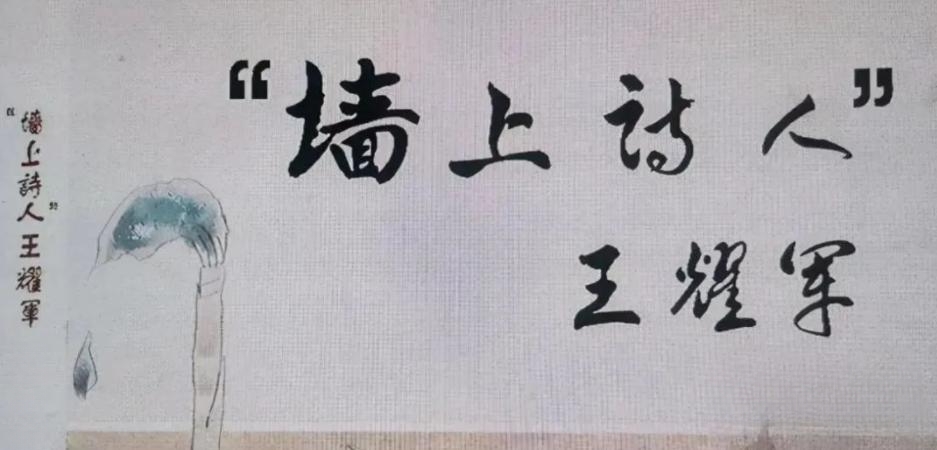 “墙上诗人”
王耀军
“墙上詩人”王耀軍